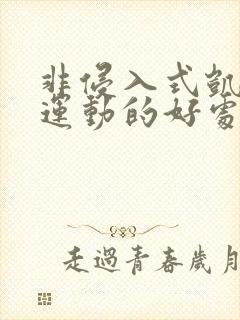 非侵入式凱
運動的好處
走過青春歲月